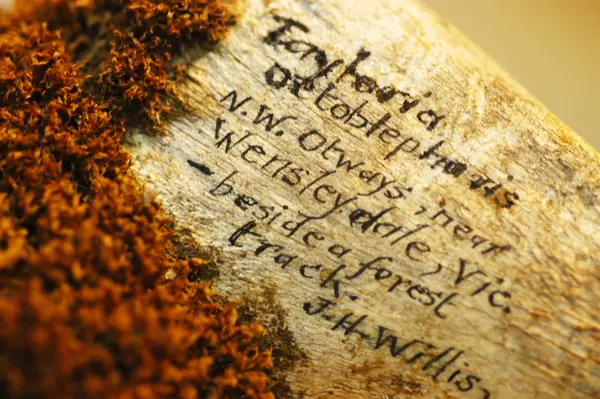 Tayloria
Octoblepharis
N.W. Otways, near
Wensleydale, Vic.
- beside a forest
track.
J.H. Willis,